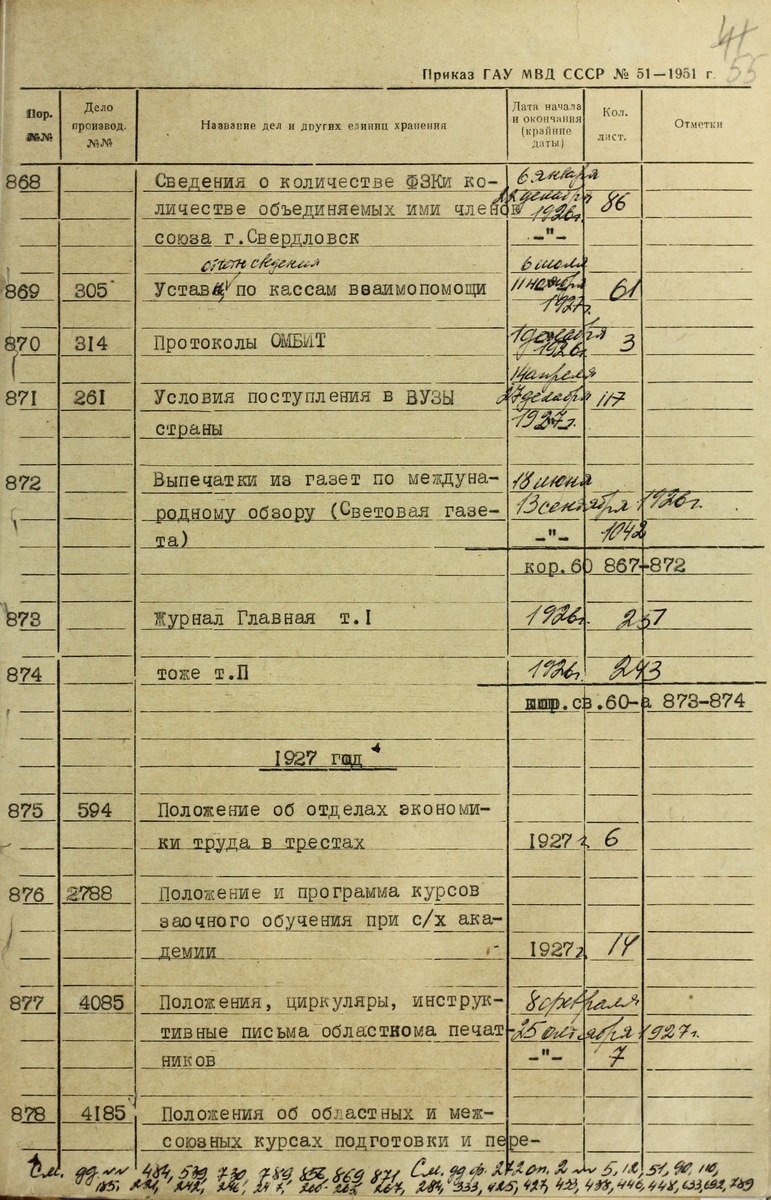 41
55
Приказ ГАУ МВД СССР № 51—1951 г.
Пор. №№ Дело производ. №№ Название дел и других единиц хранения Дата начала и окончания (крайние даты) Кол. лист. Отметки
868 Сведения о количестве ФЗКи ко- 6 января
личестве объединяемых ими членов 22 декабря 1926г. 86
союза г.Свердловск -"-
статсведения 6 июля
869 305 Устав и по кассам взаимопомощи 11 ноября 1927г. 61
870 314 Протоколы ОМБИТ 1 декабря 1926г. 3
14 апреля
871 261 Условия поступления в ВУЗы 27 декабря 117
страны 1927г.
872 Выпечатки из газет по междуна- 18 июня
родному обзору (Световая газе- 13 сентября 1926г.
та) -"- 1042
кор.60 867-872
873 Журнал Главная т.I 1926г. 257
874 тоже т.П 1926г. 243
кор.св.60-а 873-874
1927 год
875 594 Положение об отделах экономи-
ки труда в трестах 1927 г. 6
876 2788 Положение и программа курсов
заочного обучения при с/х ака-
демии 1927г. 14
877 4085 Положения, циркуляры, инструк- 8 февраля
тивные письма областнома печат- 25 октября 1927г.
ников -"- 7
878 4185 Положения об областных и меж-
союзных курсах подготовки и пере-
См. дд №№ 484, 579, 730, 789, 856, 869, 871 См. дд ф. 272 оп. 2 №№ 5, 12, 51, 90, 110,
185, 221, 242, 246, 247, 267, 284, 333, 425, 427, 433, 438, 446, 448, 633, 692, 789